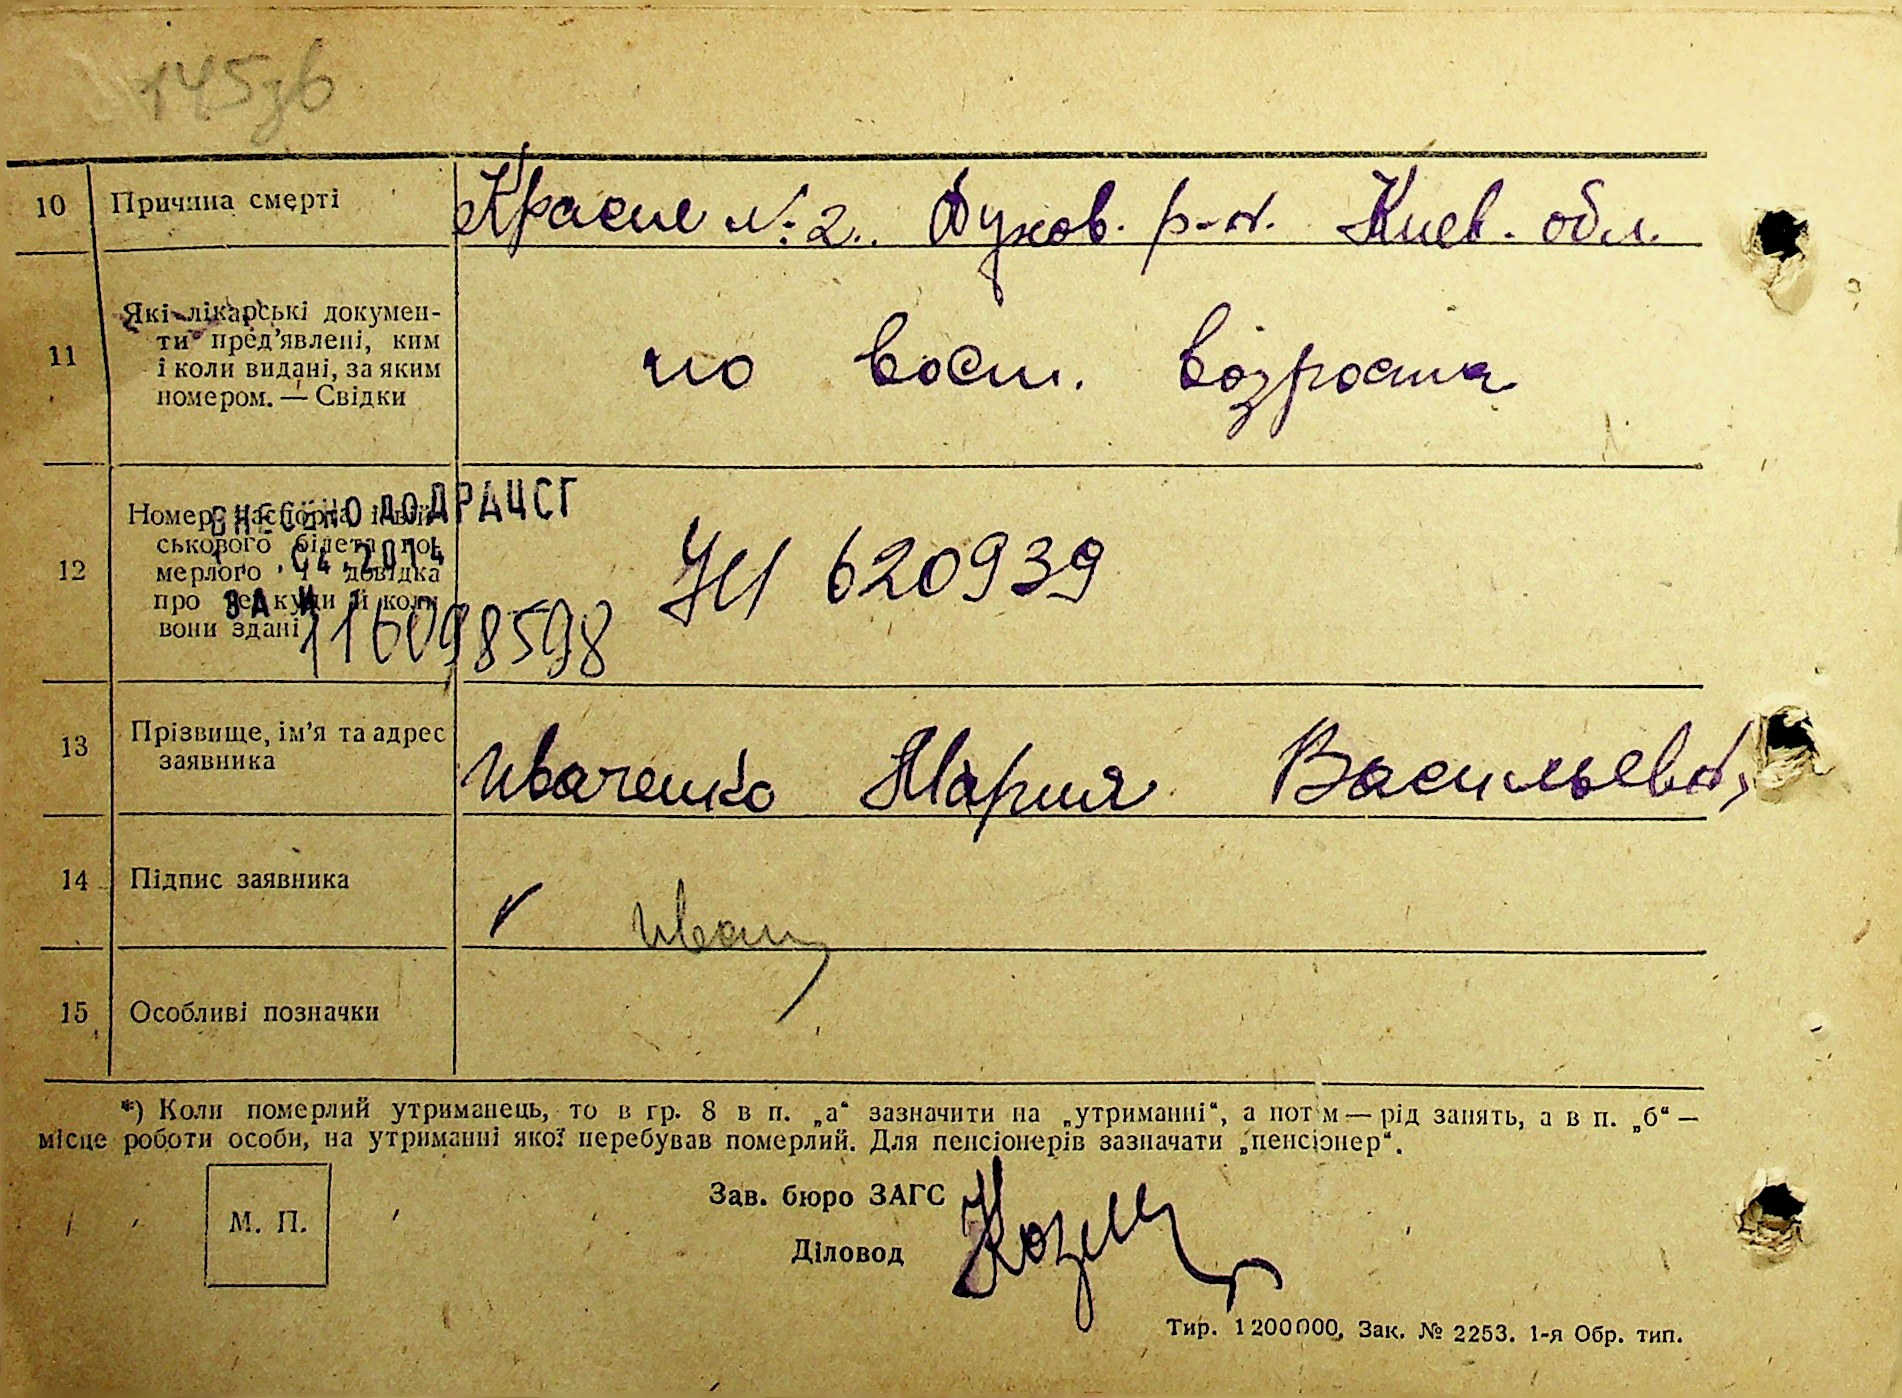 145зв
10 Причина смерті Красне №2. Обухов. р-н. Киев. обл.
11 Які лікарські докумен-
ти пред’явлені, ким
і коли видані, за яким
номером. — Свідки
по восст. возраста
12 Номер паспорта і вій-
ського білета по-
мерлого і довідка
про те куди й коли
вони здані
ВНЕСЕНО ДО ДРАЦСГ
.04.2014
ЗА №
116098598
620939
13 Прізвище, ім’я та адрес
заявника
Иваченко Мария Васильевна
14 Підпис заявника
15 Особливі позначки
*) Коли померлий утриманець, то в гр. 8 в п. „а“ зазначити на „утриманні“, а потім — рід занять, а в п. „б“ —
місце роботи особи, на утриманні якої перебував померлий. Для пенсіонерів зазначати „пенсіонер“.
М. П.
Зав. бюро ЗАГС
Діловод
Тир. 1200000, Зак. № 2253. 1-я Обр. тип.